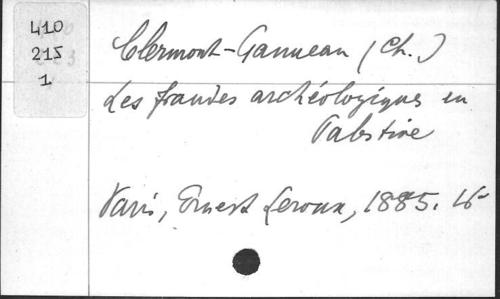 410
215
1
Clermont-Ganneau (Ch.)
Les fraudes archéologiques en
Palestine
Paris, Ernest Leroux, 1885. 16°